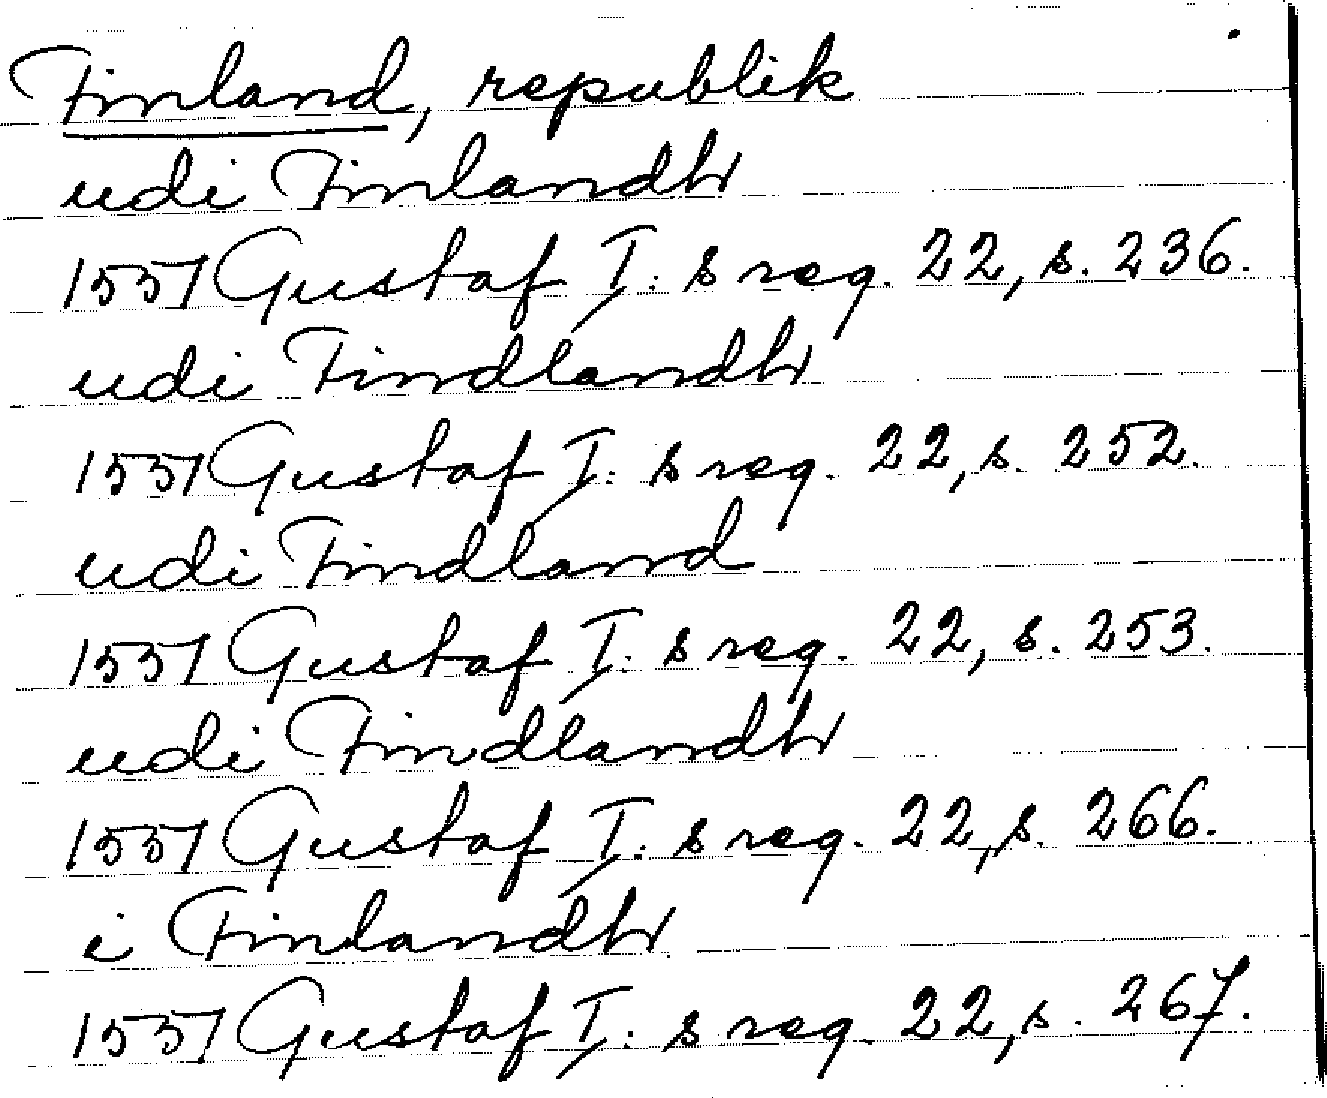 Finland, republik
udi Finlandh
1551 Gustaf I:s reg. 22, s. 236.
udi Findlandh
1551 Gustaf I:s reg. 22, s. 252.
udi Findland
1551 Gustaf I:s reg. 22, s. 253.
udi Findlandh
1551 Gustaf I:s reg. 22, s. 266.
i Finlandh
1551 Gustaf I:s reg. 22, s. 267.